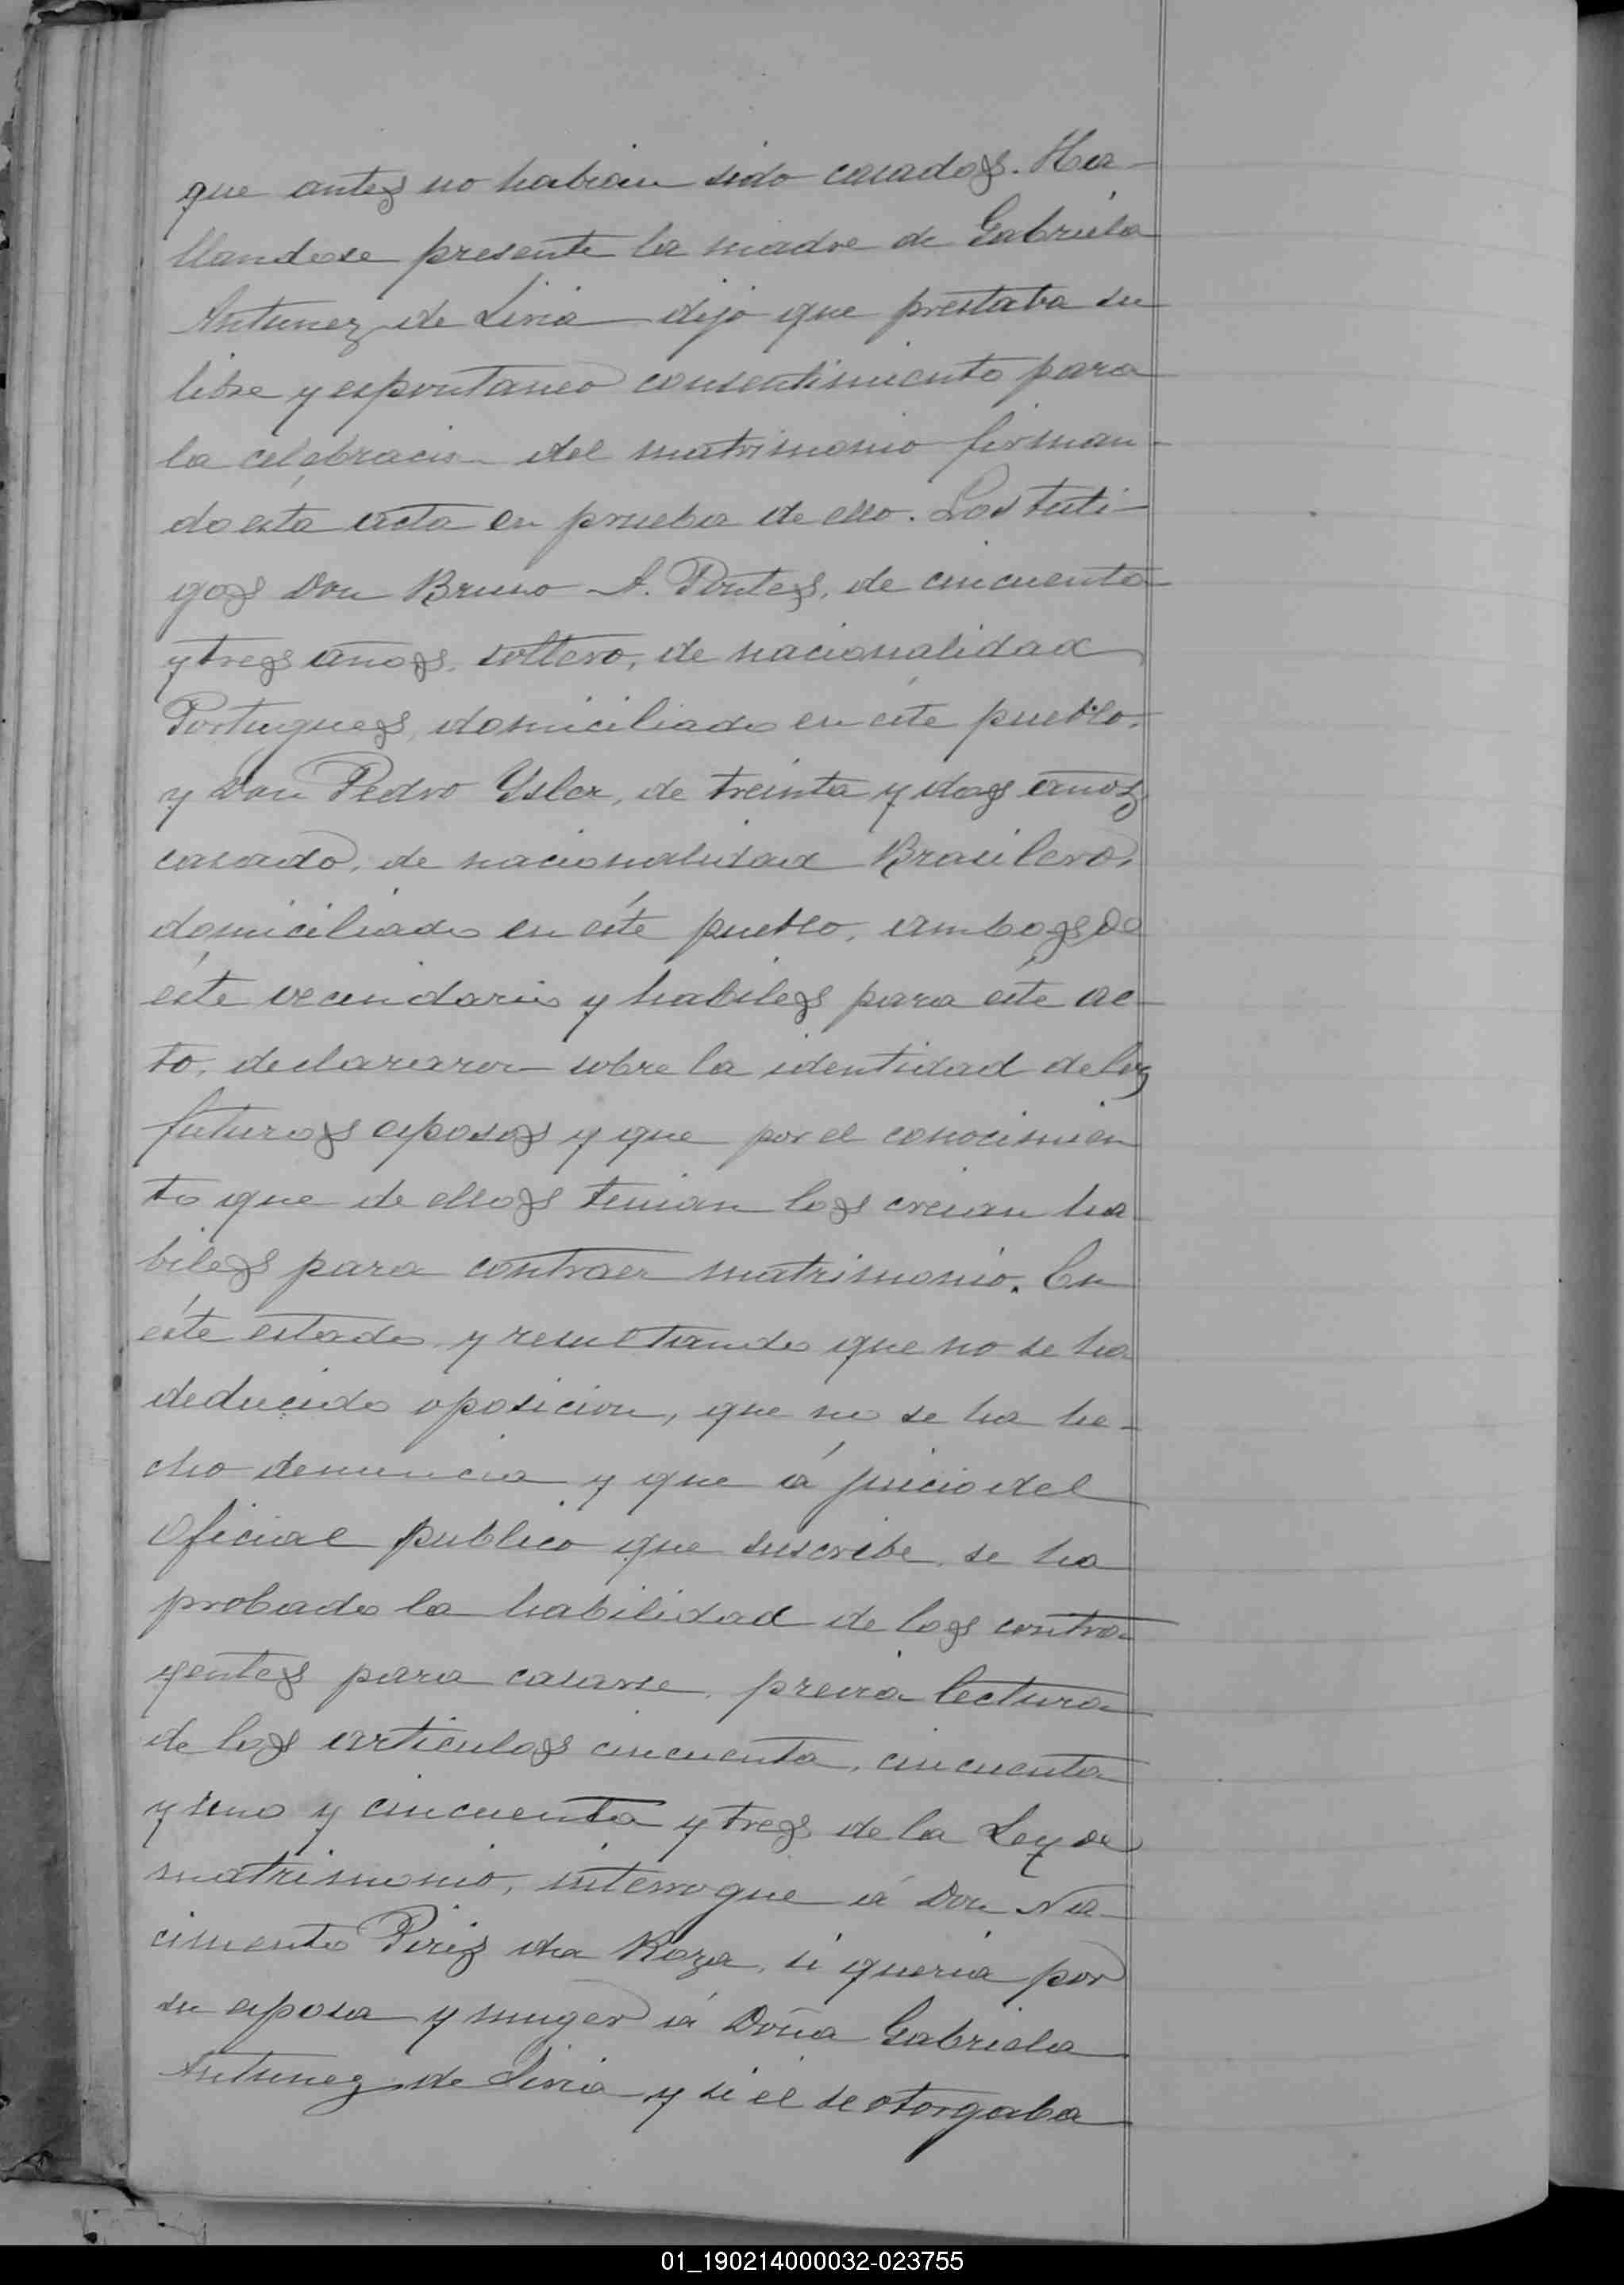 que antes no habian sido casados. Ha-
llandose presente la madre de Gabriela
Antunez de Liria dijo que prestaba su
libre y espontaneo consentimiento para
la celebracion del matrimonio firman-
do esta acta en prueba de ello. Los testi-
gos Don Bruno A. Portes, de cincuenta
y tres años, soltero, de nacionalidad
Portugues, domiciliado en éste pueblo,
y Don Pedro Ysler, de treinta y dos años
casado, de nacionalidad Brasilero,
domiciliado en éste pueblo, ambos de
éste vecindario y habiles para éste ac-
to, declararon sobre la identidad de los
futuros esposos y que por el conocimien
to que de ellos tenian los creian ha-
biles para contraer matrimonio. En
éste estado y resultando que no se ha
deducido oposicion, que no se ha he-
cho denuncia y que á juicio del
Oficial publico que suscribe, se ha
probado la habilidad de los contra-
yentes para casarse, previa lectura
de los articulos cincuenta, cincuenta
y uno y cincuenta y tres de la Ley de
matrimonio, interrogue á Don Na-
cimento Piriz da Roza, si queria por
su esposa y muger á Doña Gabriela
Antunez de Liria y si el se otorgaba
01_190214000032-023755